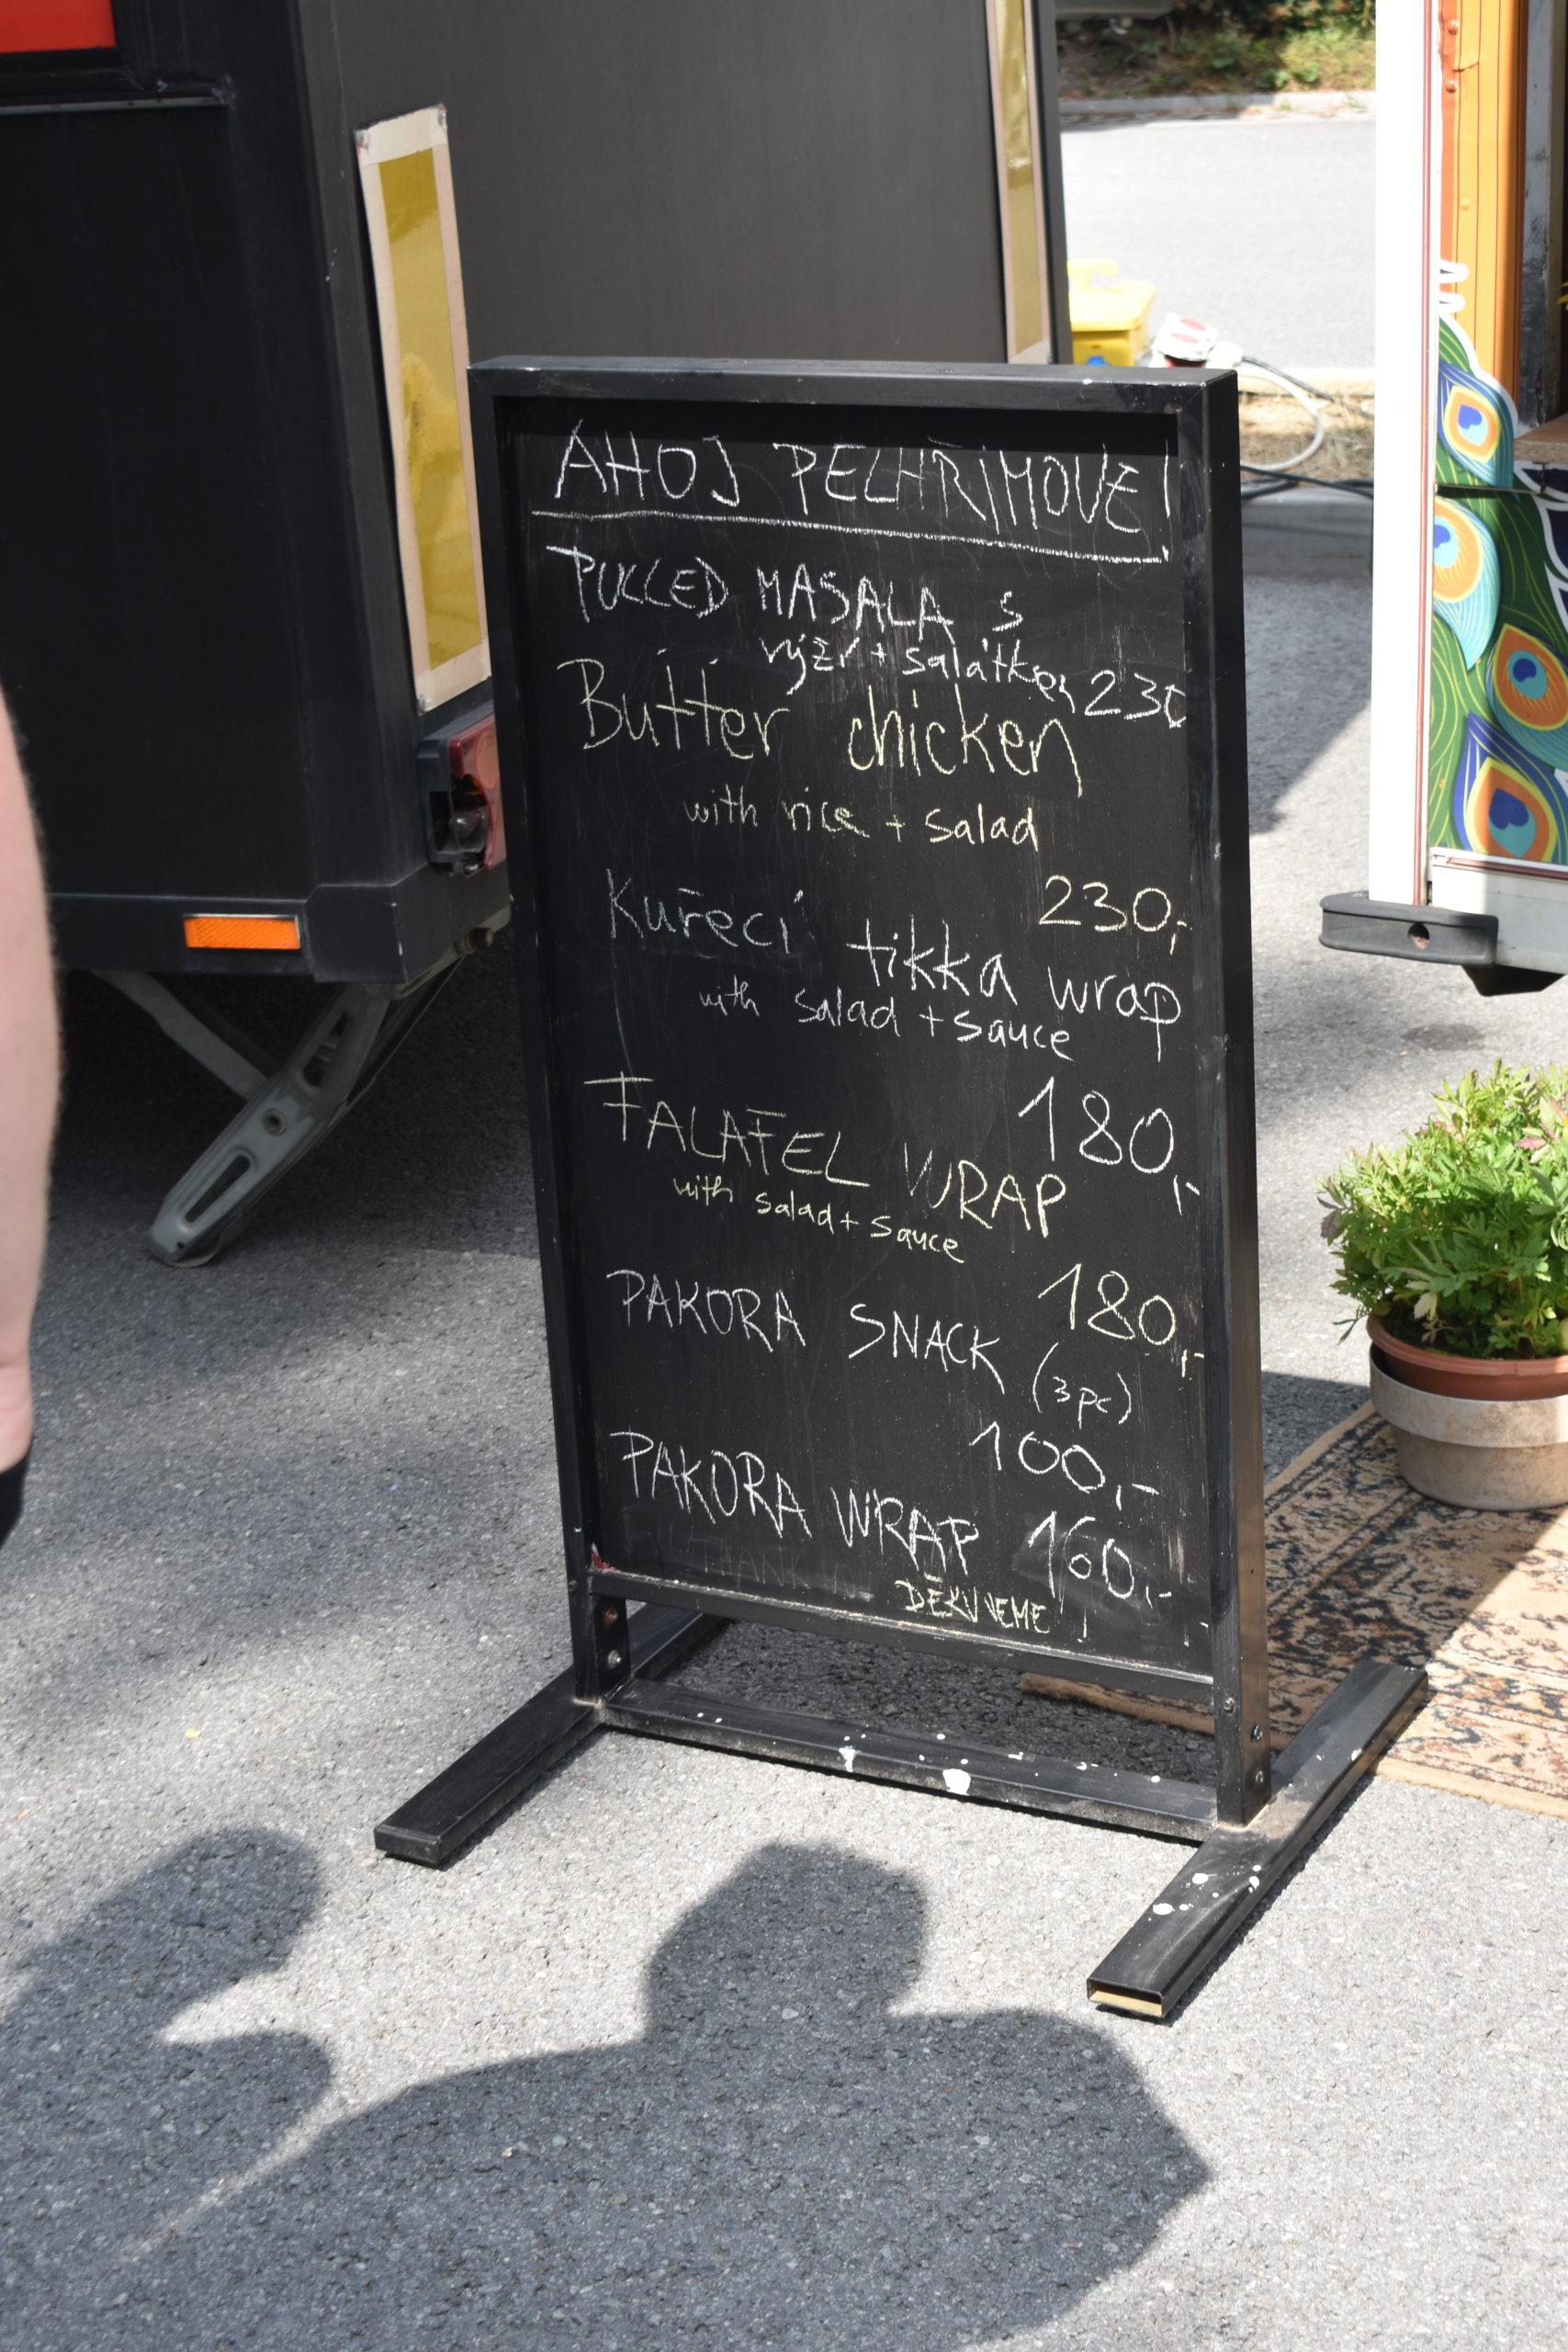 AHOJ PELHŘIMOVE!
PULLED MASALA s
rýží + salátkem 230
Butter chicken
with rice + salad
230,-
Kuřecí tikka wrap
with salad + sauce
180,-
FALAFEL WRAP
with salad + sauce
180,-
PAKORA SNACK
(3pc)
100,-
PAKORA WRAP 160,-
THANK
DĚKUJEME!